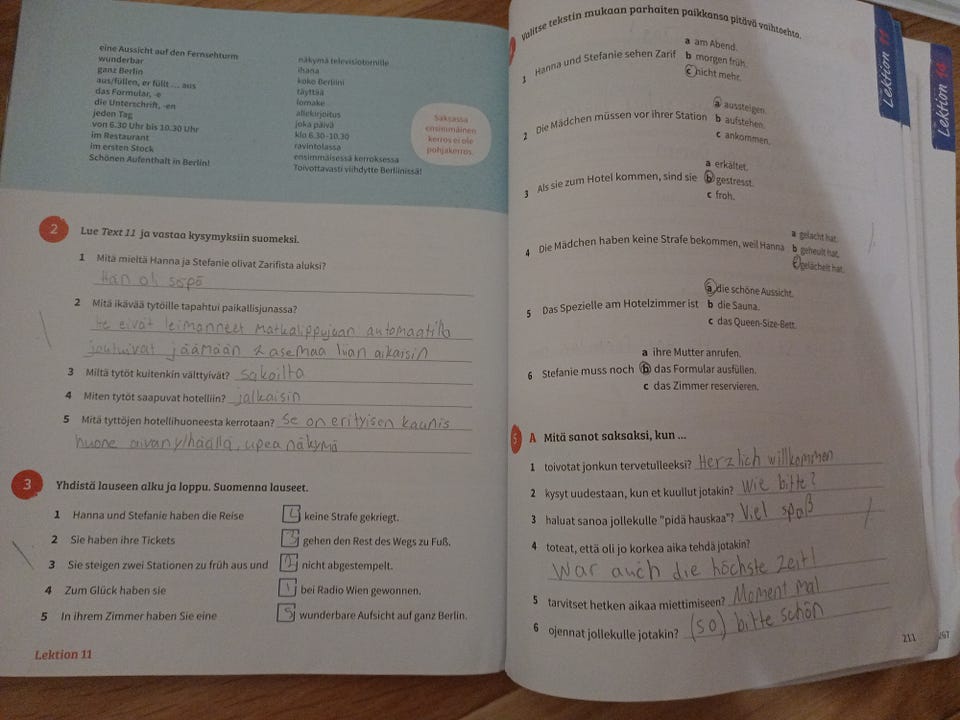 eine Aussicht auf den Fernsehturm näkymä televisiotornille
wunderbar ihana
ganz Berlin koko Berliini
aus/füllen, er füllt ... aus täyttää
das Formular, -e lomake
die Unterschrift, -en allekirjoitus
jeden Tag joka päivä
von 6.30 Uhr bis 10.30 Uhr klo 6.30-10.30
im Restaurant ravintolassa
im ersten Stock ensimmäisessä kerroksessa
Schönen Aufenthalt in Berlin! Toivottavasti viihdytte Berliinissä!
Saksassa
ensimmäinen
kerros ei ole
pohjakerros.
2 Lue Text 11 ja vastaa kysymyksiin suomeksi.
1 Mitä mieltä Hanna ja Stefanie olivat Zarifista aluksi?
Hän oli söpö
2 Mitä ikävää tytöille tapahtui paikallisjunassa?
He eivät leimanneet matkalippujaan automaatilla
joutuivat jäämään 2 asemaa liian aikaisin
3 Miltä tytöt kuitenkin välttyivät? sakoilta
4 Miten tytöt saapuvat hotelliin? jalkaisin
5 Mitä tyttöjen hotellihuoneesta kerrotaan? Se on erityisen kaunis
huone aivan ylhäällä, upea näkymä
3 Yhdistä lauseen alku ja loppu. Suomenna lauseet.
1 Hanna und Stefanie haben die Reise 4 keine Strafe gekriegt.
2 Sie haben ihre Tickets 3 gehen den Rest des Wegs zu Fuß.
3 Sie steigen zwei Stationen zu früh aus und 2 nicht abgestempelt.
4 Zum Glück haben sie 1 bei Radio Wien gewonnen.
5 In ihrem Zimmer haben Sie eine 5 wunderbare Aufsicht auf ganz Berlin.
Lektion 11
Valitse tekstin mukaan parhaiten paikkansa pitävä vaihtoehto.
a am Abend.
1 Hanna und Stefanie sehen Zarif b morgen früh.
c nicht mehr.
a aussteigen.
2 Die Mädchen müssen vor ihrer Station b aufstehen.
c ankommen.
a erkältet.
3 Als sie zum Hotel kommen, sind sie b gestresst.
c froh.
a gelacht hat.
4 Die Mädchen haben keine Strafe bekommen, weil Hanna b geheult hat.
c gelächelt hat.
a die schöne Aussicht.
5 Das Spezielle am Hotelzimmer ist b die Sauna.
c das Queen-Size-Bett.
a ihre Mutter anrufen.
6 Stefanie muss noch b das Formular ausfüllen.
c das Zimmer reservieren.
5 A Mitä sanot saksaksi, kun ...
1 toivotat jonkun tervetulleeksi? Herzlich willkommen
2 kysyt uudestaan, kun et kuullut jotakin? Wie bitte?
3 haluat sanoa jollekulle "pidä hauskaa"? Viel spaß
4 toteat, että oli jo korkea aika tehdä jotakin?
War auch die höchste Zeit!
5 tarvitset hetken aikaa miettimiseen? Moment mal
6 ojennat jollekulle jotakin? (so) bitte schön
211
Lektion 11
Lektion 14